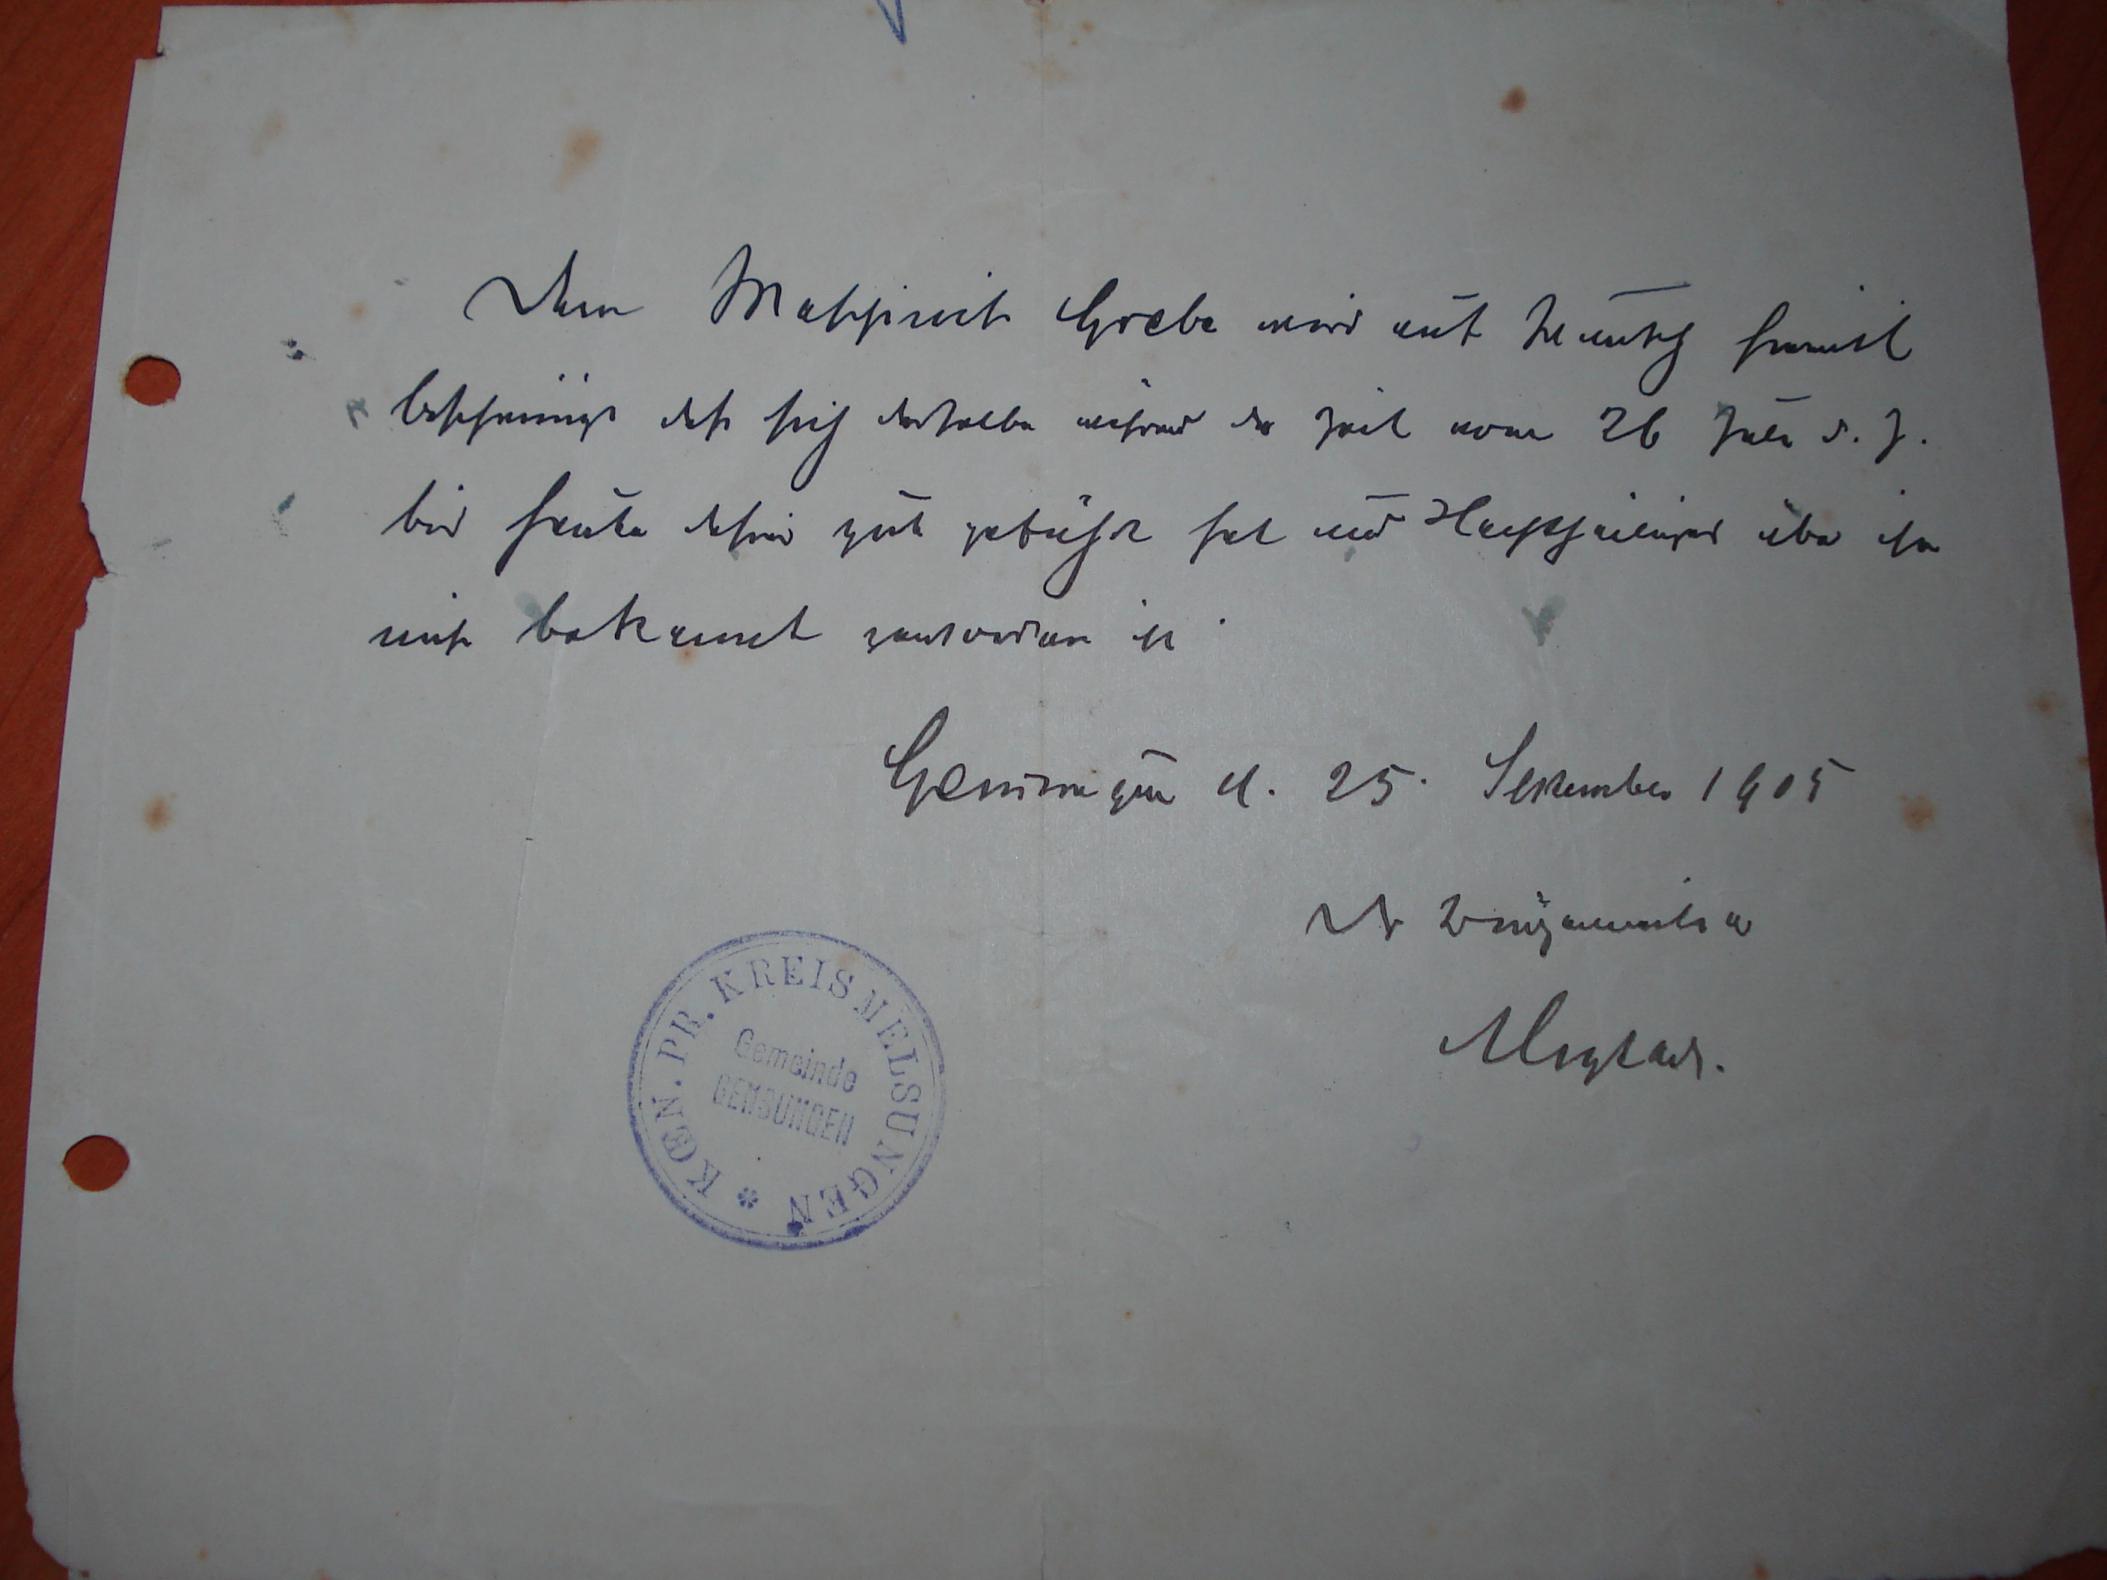 Dem Maschinist Grebe wird auf Wunsch hiermit
bescheinigt daß sich derselbe während der Zeit vom 26 Juli d. J.
bis heute dahier gut geführt hat und Nachtheiliges über ihn
nicht bekannt geworden ist.
Gensungen d. 25. September 1905
Der Bürgermeister
KOEN. PR. KREIS MELSUNGEN
Gemeinde
GENSUNGEN